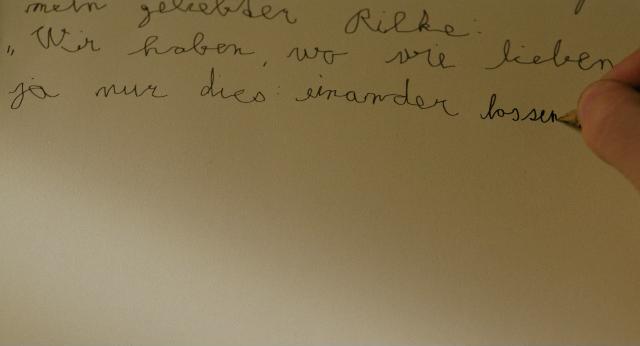 mein geliebter Rilke:
„Wir haben, wo wir lieben,
ja nur dies: einander lassen